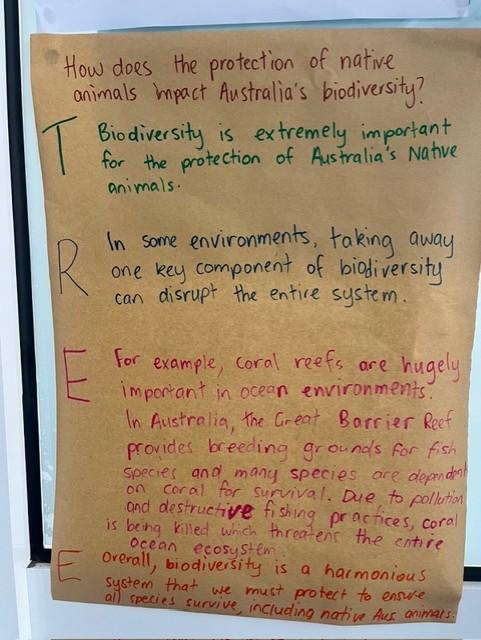 How does the protection of native
animals impact Australia's biodiversity?
T Biodiversity is extremely important
for the protection of Australia's Native
animals.
In some environments, taking away
R one key component of biodiversity
can disrupt the entire system.
E For example, coral reefs are hugely
important in ocean environments.
In Australia, the Great Barrier Reef
provides breeding grounds for fish
species and many species are dependent
on coral for survival. Due to pollution
and destructive fishing practices, coral
is being killed which threatens the entire
ocean ecosystem.
E Overall, biodiversity is a harmonious
system that we must protect to ensure
all species survive, including native Aus animals.